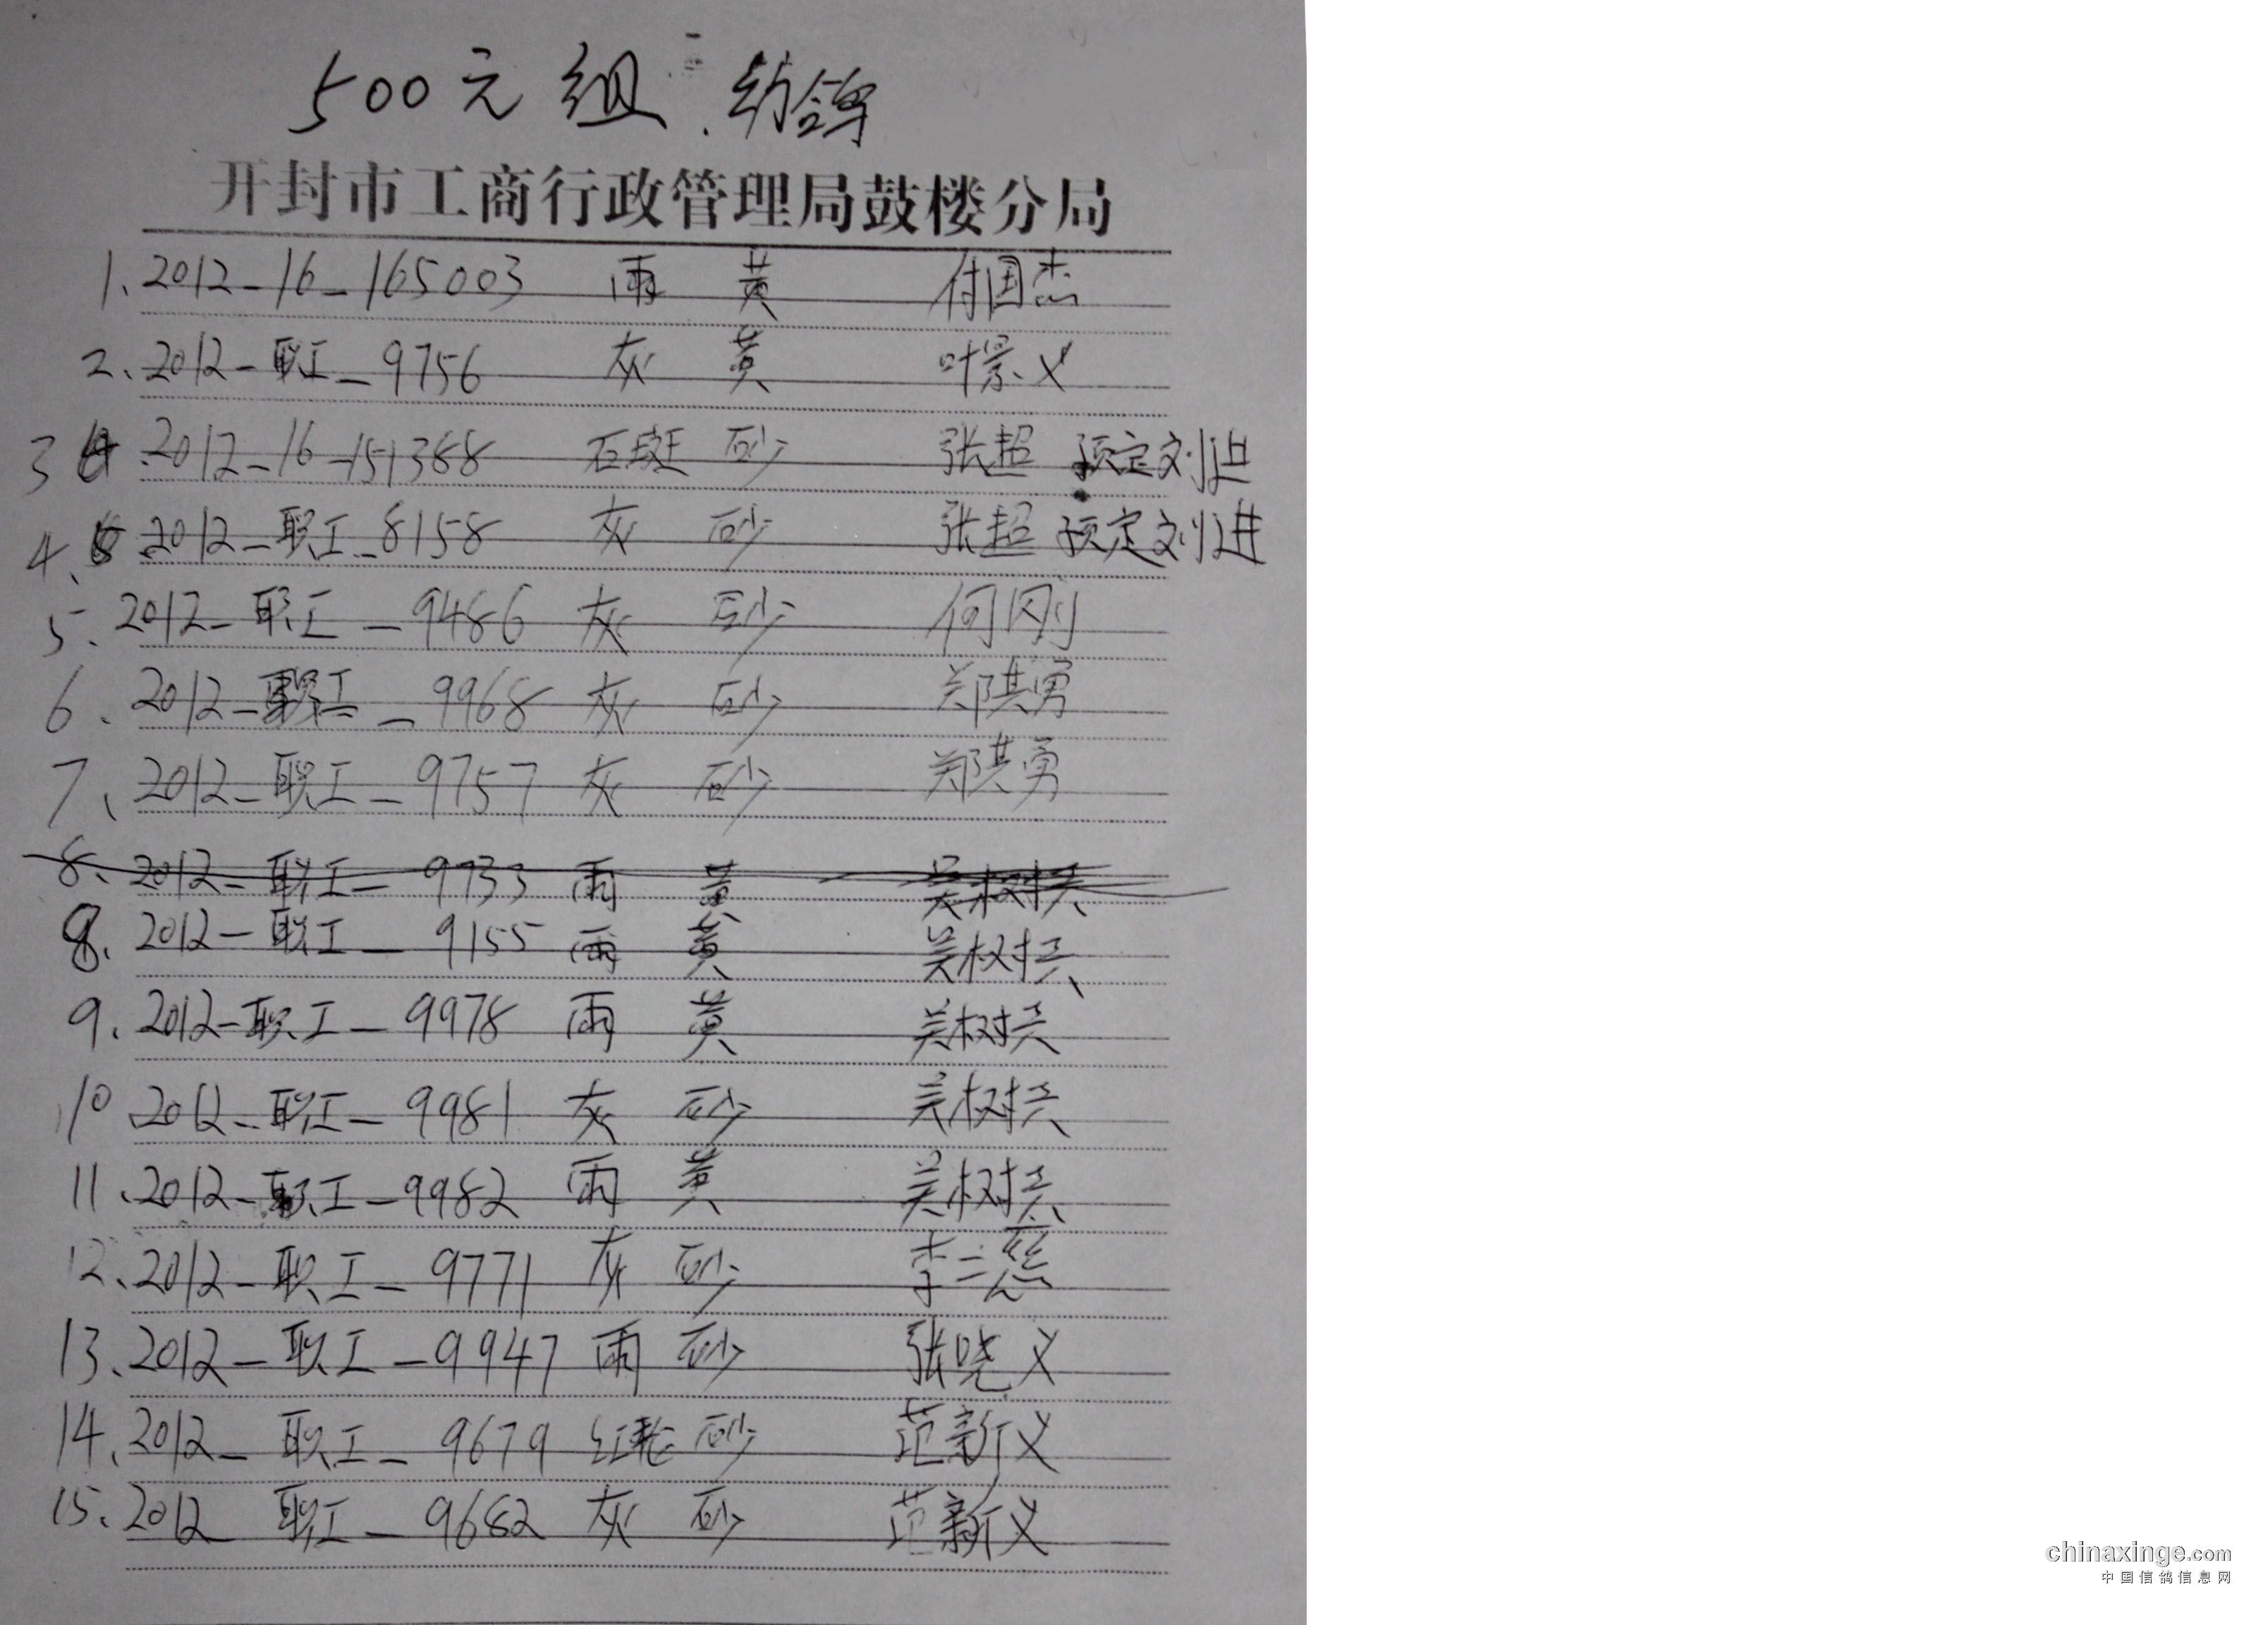 500元组.幼鸽
开封市工商行政管理局鼓楼分局
1、2012-16-165003 雨 黄 付国杰
2、2012-职工-9756 灰 黄 叶景义
3 2012-16-151388 石斑 砂 张超 预定刘进
4、2012-职工-8158 灰 砂 张超 预定刘进
5、2012-职工-9486 灰 砂 何刚
6、2012-职工-9968 灰 砂 郑洪勇
7、2012-职工-9757 灰 砂 郑洪勇
8、2012-职工-9733 雨 黄 吴树兵
8、2012-职工-9155 雨 黄 吴树兵
9、2012-职工-9978 雨 黄 吴树兵
10、2012-职工-9981 灰 砂 吴树兵
11、2012-职工-9982 雨 黄 吴树兵
12、2012-职工-9771 灰 砂 李二慈
13、2012-职工-9947 雨 砂 张晓义
14、2012-职工-9679 红轮 砂 范新义
15、2012 职工-9682 灰 砂 范新义
chinaxinge.com
中国信鸽信息网